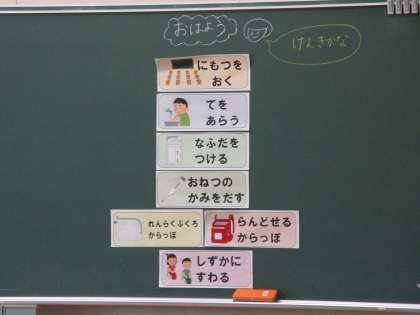 おはよう
げんきかな
にもつを
おく
てを
あらう
なふだを
つける
おねつの
かみをだす
れんらくぶくろ
からっぽ
らんどせる
からっぽ
しずかに
すわる